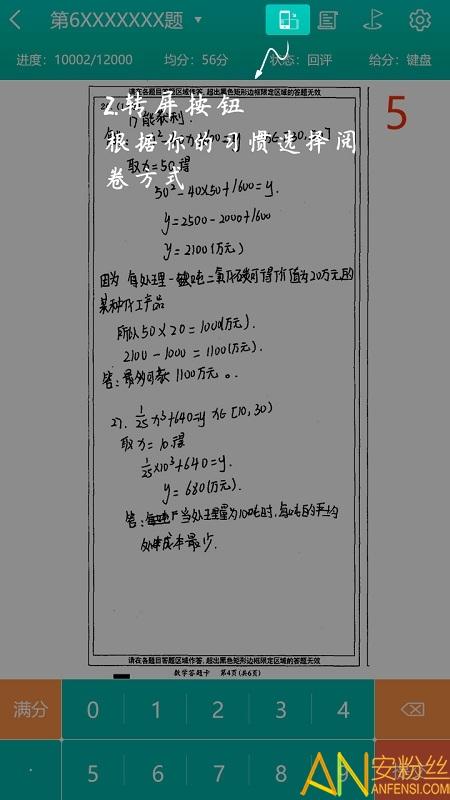 第6XXXXXXX题
进度：10002/12000 均分：56分 状态：回评 给分：键盘
请在各题目答题区域作答，超出黑色矩形边框限定区域的答题无效
2.转屏按钮
根据你的习惯选择阅
卷方式
5
取x=50得
50²-40×50+1600=y.
y=2500-2000+1600
y=2100(万元)
因为 每处理一吨二氧化碳可得价值为20万元的
某种化工产品
所以50×20=1000(万元).
2100-1000=1100(万元).
答：最多可款1100万元。
27. 1/25 x³+640=y x∈[10,30)
取x=10.得
1/25×10³+640=y.
y=680(万元).
答：当处理量为10吨时，每吨的平均
处理成本最少.
请在各题目答题区域作答，超出黑色矩形边框限定区域的答题无效
数学答题卡 第4页(共6页)
满分 0 1 2 3 4
· 5 6 7 8 9 提交
安粉丝
ANFENSI.COM